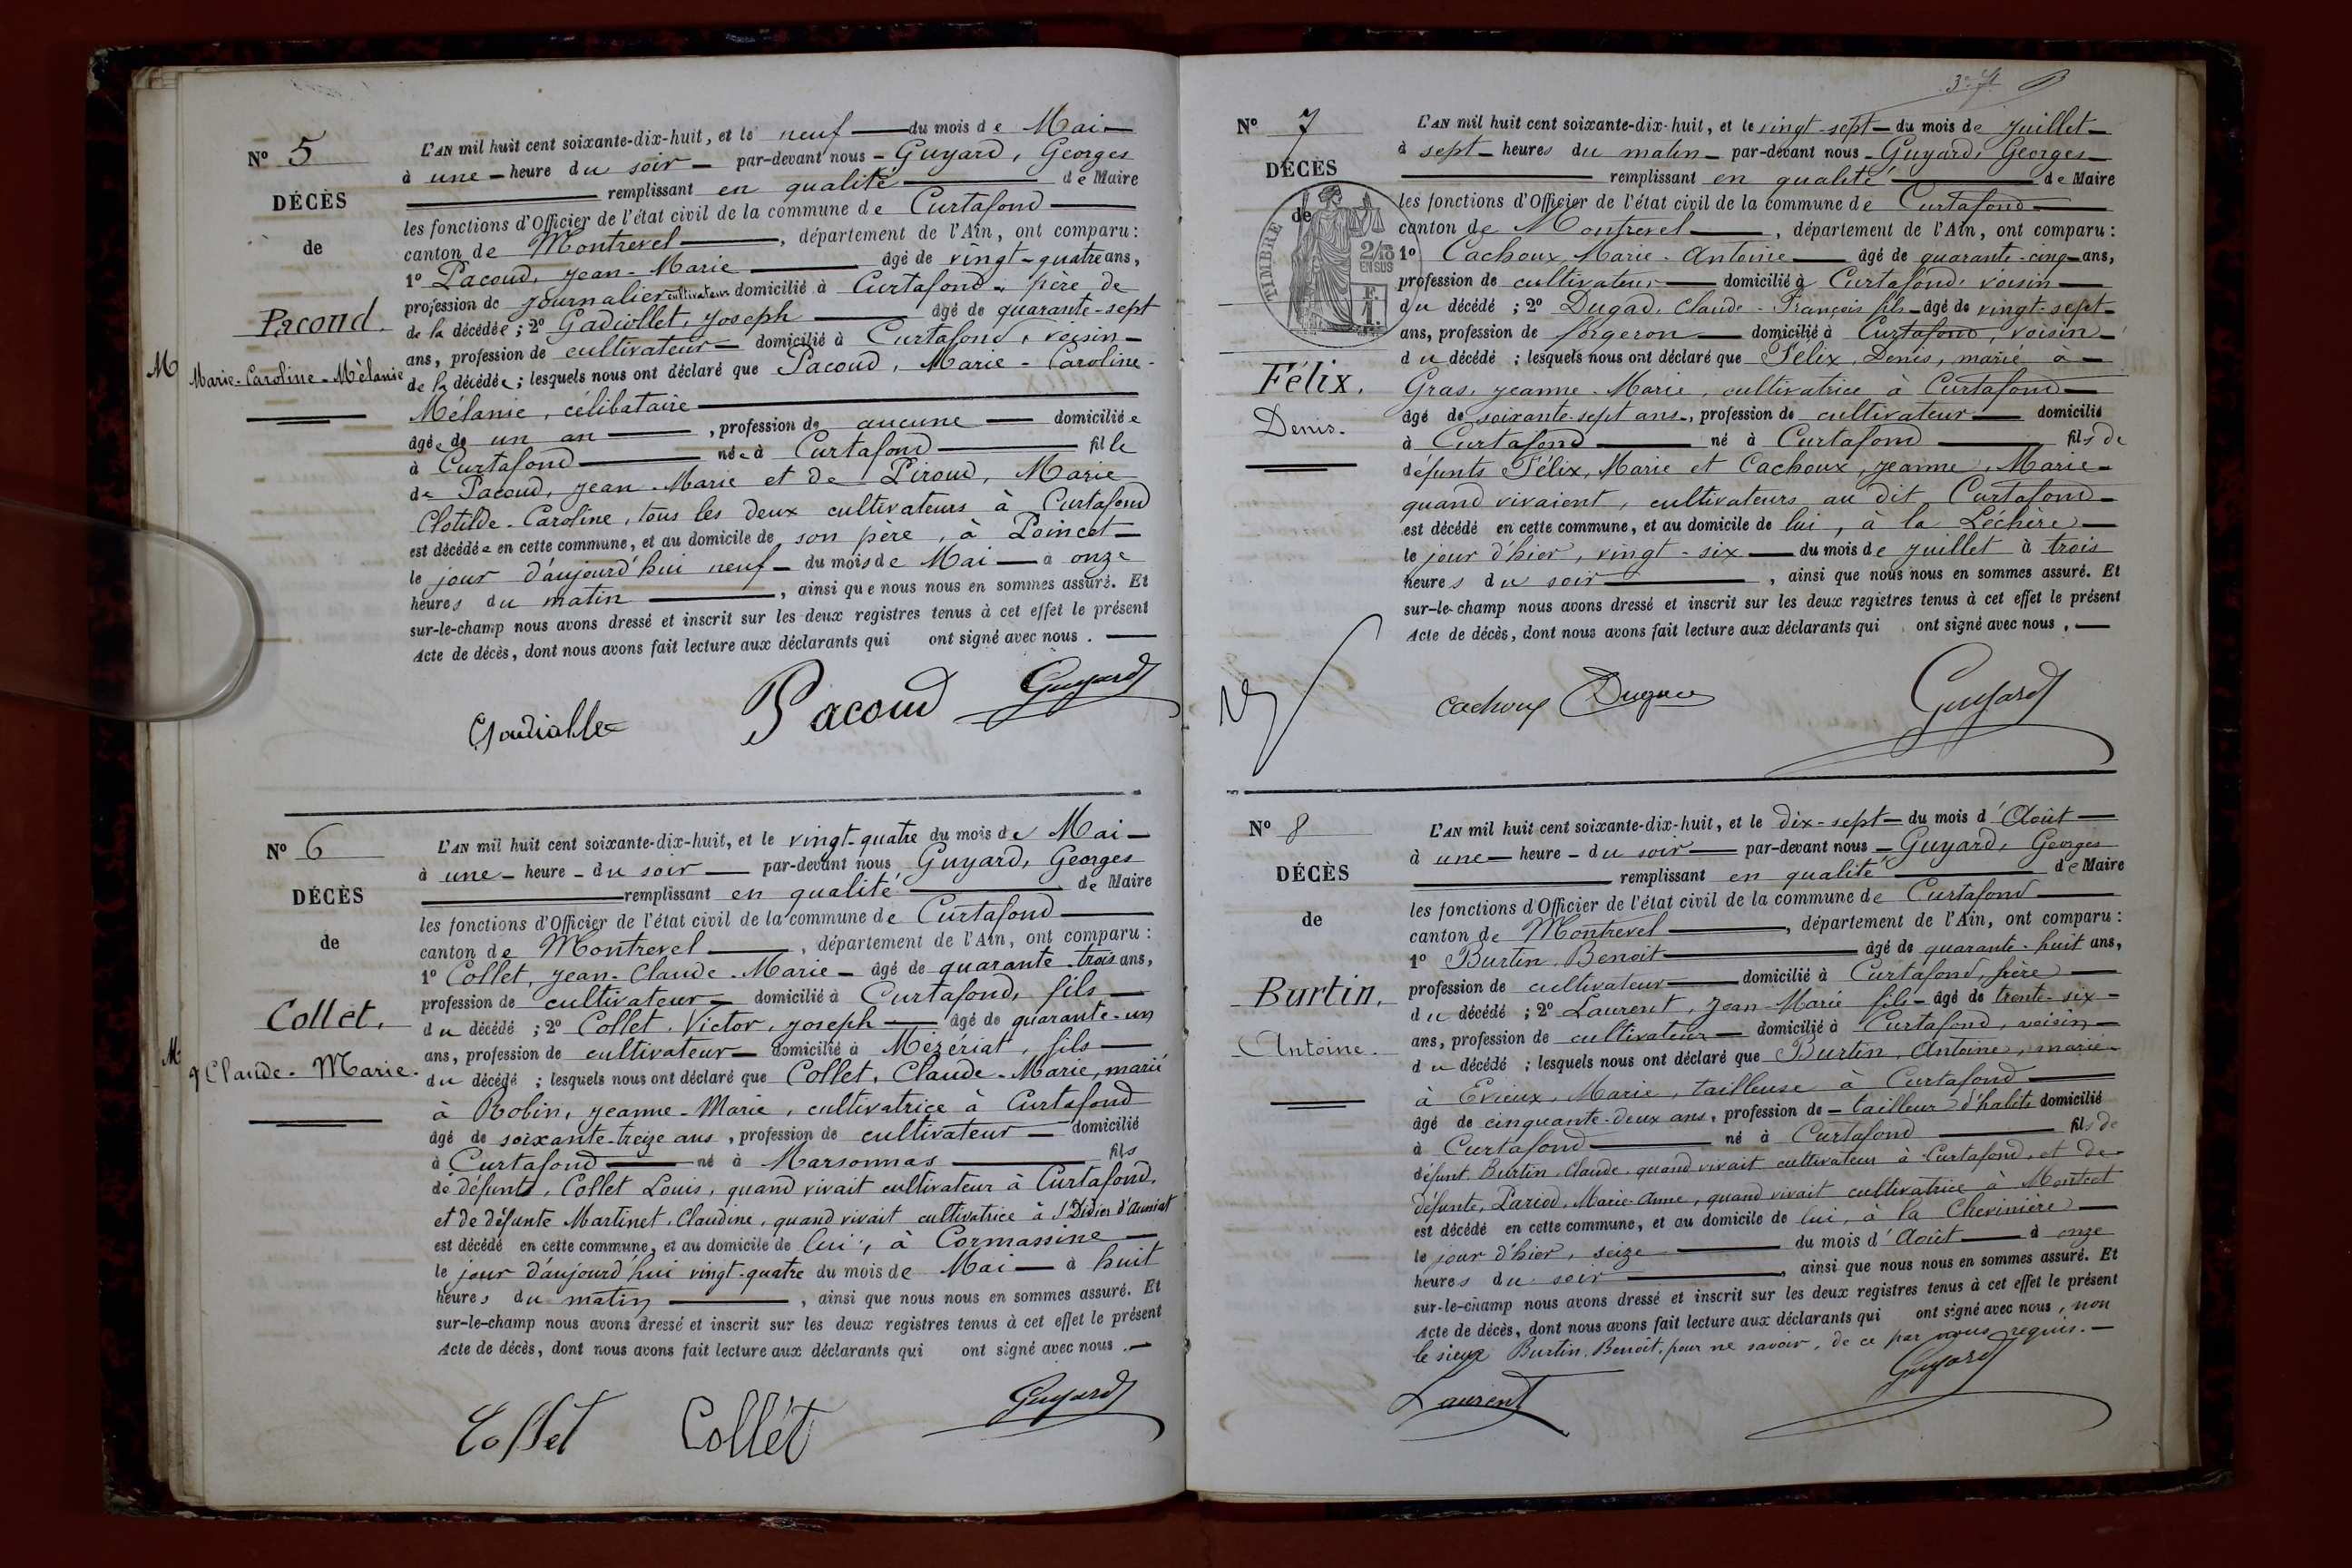 Nº 5
DÉCÈS
de
Pacoud.
M Marie-Caroline-Mélanie
L'AN mil huit cent soixante-dix-huit, et le neuf du mois de Mai
à une heure du soir par-devant nous Guyard, Georges
remplissant en qualité de Maire
les fonctions d'Officier de l'état civil de la commune de Curtafond
canton de Montrevel, département de l'Ain, ont comparu :
1º Pacoud, Jean-Marie âgé de vingt-quatre ans,
profession de journalier cultivateur domicilié à Curtafond, père de
de la décédée ; 2º Gadiollet, Joseph âgé de quarante-sept
ans, profession de cultivateur domicilié à Curtafond, voisin
de la décédée ; lesquels nous ont déclaré que Pacoud, Marie-Caroline-
Mélanie, célibataire
âgée de un an, profession de aucune domiciliée
à Curtafond née à Curtafond fille
de Pacoud, Jean-Marie et de Piroud, Marie
Clotilde-Caroline, tous les deux cultivateurs à Curtafond
est décédée en cette commune, et au domicile de son père, à Poincet
le jour d'aujourd'hui neuf du mois de Mai à onze
heures du matin, ainsi que nous nous en sommes assuré. Et
sur-le-champ nous avons dressé et inscrit sur les deux registres tenus à cet effet le présent
Acte de décès, dont nous avons fait lecture aux déclarants qui ont signé avec nous.
Pacoud Guyard
Nº 6
DÉCÈS
de
Collet.
M Claude-Marie.
L'AN mil huit cent soixante-dix-huit, et le vingt-quatre du mois de Mai
à une heure du soir par-devant nous Guyard, Georges
remplissant en qualité de Maire
les fonctions d'Officier de l'état civil de la commune de Curtafond
canton de Montrevel, département de l'Ain, ont comparu :
1º Collet, Jean-Claude-Marie âgé de quarante-trois ans,
profession de cultivateur domicilié à Curtafond, fils
du décédé ; 2º Collet, Victor, Joseph âgé de quarante-un
ans, profession de cultivateur domicilié à Mézériat, fils
du décédé ; lesquels nous ont déclaré que Collet, Claude-Marie, marié
à Robin, Jeanne-Marie, cultivatrice à Curtafond
âgé de soixante-treize ans, profession de cultivateur domicilié
à Curtafond né à Marsonnas fils
de défunts, Collet Louis, quand vivait cultivateur à Curtafond,
et de défunte Martinet, Claudine, quand vivait cultivatrice à St Didier d'Aussiat
est décédé en cette commune, et au domicile de lui, à Cormassine
le jour d'aujourd'hui vingt-quatre du mois de Mai à huit
heures du matin, ainsi que nous nous en sommes assuré. Et
sur-le-champ nous avons dressé et inscrit sur les deux registres tenus à cet effet le présent
Acte de décès, dont nous avons fait lecture aux déclarants qui ont signé avec nous.
Collet Collet Guyard
Nº 7
DÉCÈS
de
TIMBRE
2/10
EN SUS
Félix.
Denis.
L'AN mil huit cent soixante-dix-huit, et le vingt-sept du mois de Juillet
à sept heures du matin par-devant nous Guyard, Georges
remplissant en qualité de Maire
les fonctions d'Officier de l'état civil de la commune de Curtafond
canton de Montrevel, département de l'Ain, ont comparu :
1º Cachoux, Marie-Antoine âgé de quarante-cinq ans,
profession de cultivateur domicilié à Curtafond, voisin
du décédé ; 2º Dugad, Claude-François fils âgé de vingt-sept
ans, profession de forgeron domicilié à Curtafond, voisin
du décédé ; lesquels nous ont déclaré que Félix, Denis, marié à
Gras, Jeanne-Marie, cultivatrice à Curtafond
âgé de soixante-sept ans, profession de cultivateur domicilié
à Curtafond né à Curtafond fils de
défunts Félix, Marie et Cachoux, Jeanne, Marie
quand vivaient, cultivateurs au dit Curtafond
est décédé en cette commune, et au domicile de lui, à la Léchère
le jour d'hier, vingt-six du mois de Juillet à trois
heures du soir, ainsi que nous nous en sommes assuré. Et
sur-le-champ nous avons dressé et inscrit sur les deux registres tenus à cet effet le présent
Acte de décès, dont nous avons fait lecture aux déclarants qui ont signé avec nous.
Cachoux Guyard
Nº 8
DÉCÈS
de
Burtin.
Antoine.
L'AN mil huit cent soixante-dix-huit, et le dix-sept du mois d'Août
à une heure du soir par-devant nous Guyard, Georges
remplissant en qualité de Maire
les fonctions d'Officier de l'état civil de la commune de Curtafond
canton de Montrevel, département de l'Ain, ont comparu :
1º Burtin, Benoît âgé de quarante-huit ans,
profession de cultivateur domicilié à Curtafond, frère
du décédé ; 2º Laurent, Jean-Marie fils âgé de trente-six
ans, profession de cultivateur domicilié à Curtafond, voisin
du décédé ; lesquels nous ont déclaré que Burtin, Antoine, marié
à Evieux, Marie, tailleuse à Curtafond
âgé de cinquante-deux ans, profession de tailleur d'habits domicilié
à Curtafond né à Curtafond fils de
défunt, Burtin, Claude, quand vivait cultivateur à Curtafond, et de
défunte, Pariod, Marie-Anne, quand vivait cultivatrice à Montcet
est décédé en cette commune, et au domicile de lui, à la Chevinière
le jour d'hier, seize du mois d'Août à onze
heures du soir, ainsi que nous nous en sommes assuré. Et
sur-le-champ nous avons dressé et inscrit sur les deux registres tenus à cet effet le présent
Acte de décès, dont nous avons fait lecture aux déclarants qui ont signé avec nous, non
le sieur Burtin, Benoît, pour ne savoir, de ce par nous requis.
Laurent Guyard